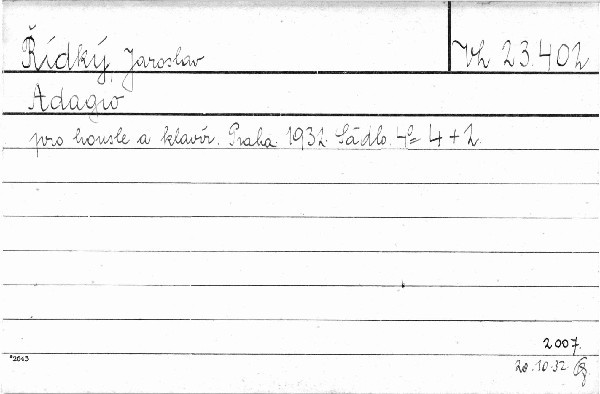 Řídký, Jaroslav
Vh 23.402
Adagio
pro housle a klavír. Praha. 1932. Sádlo. 4° 4 + 2.
2007.
*2643
28.10.32.